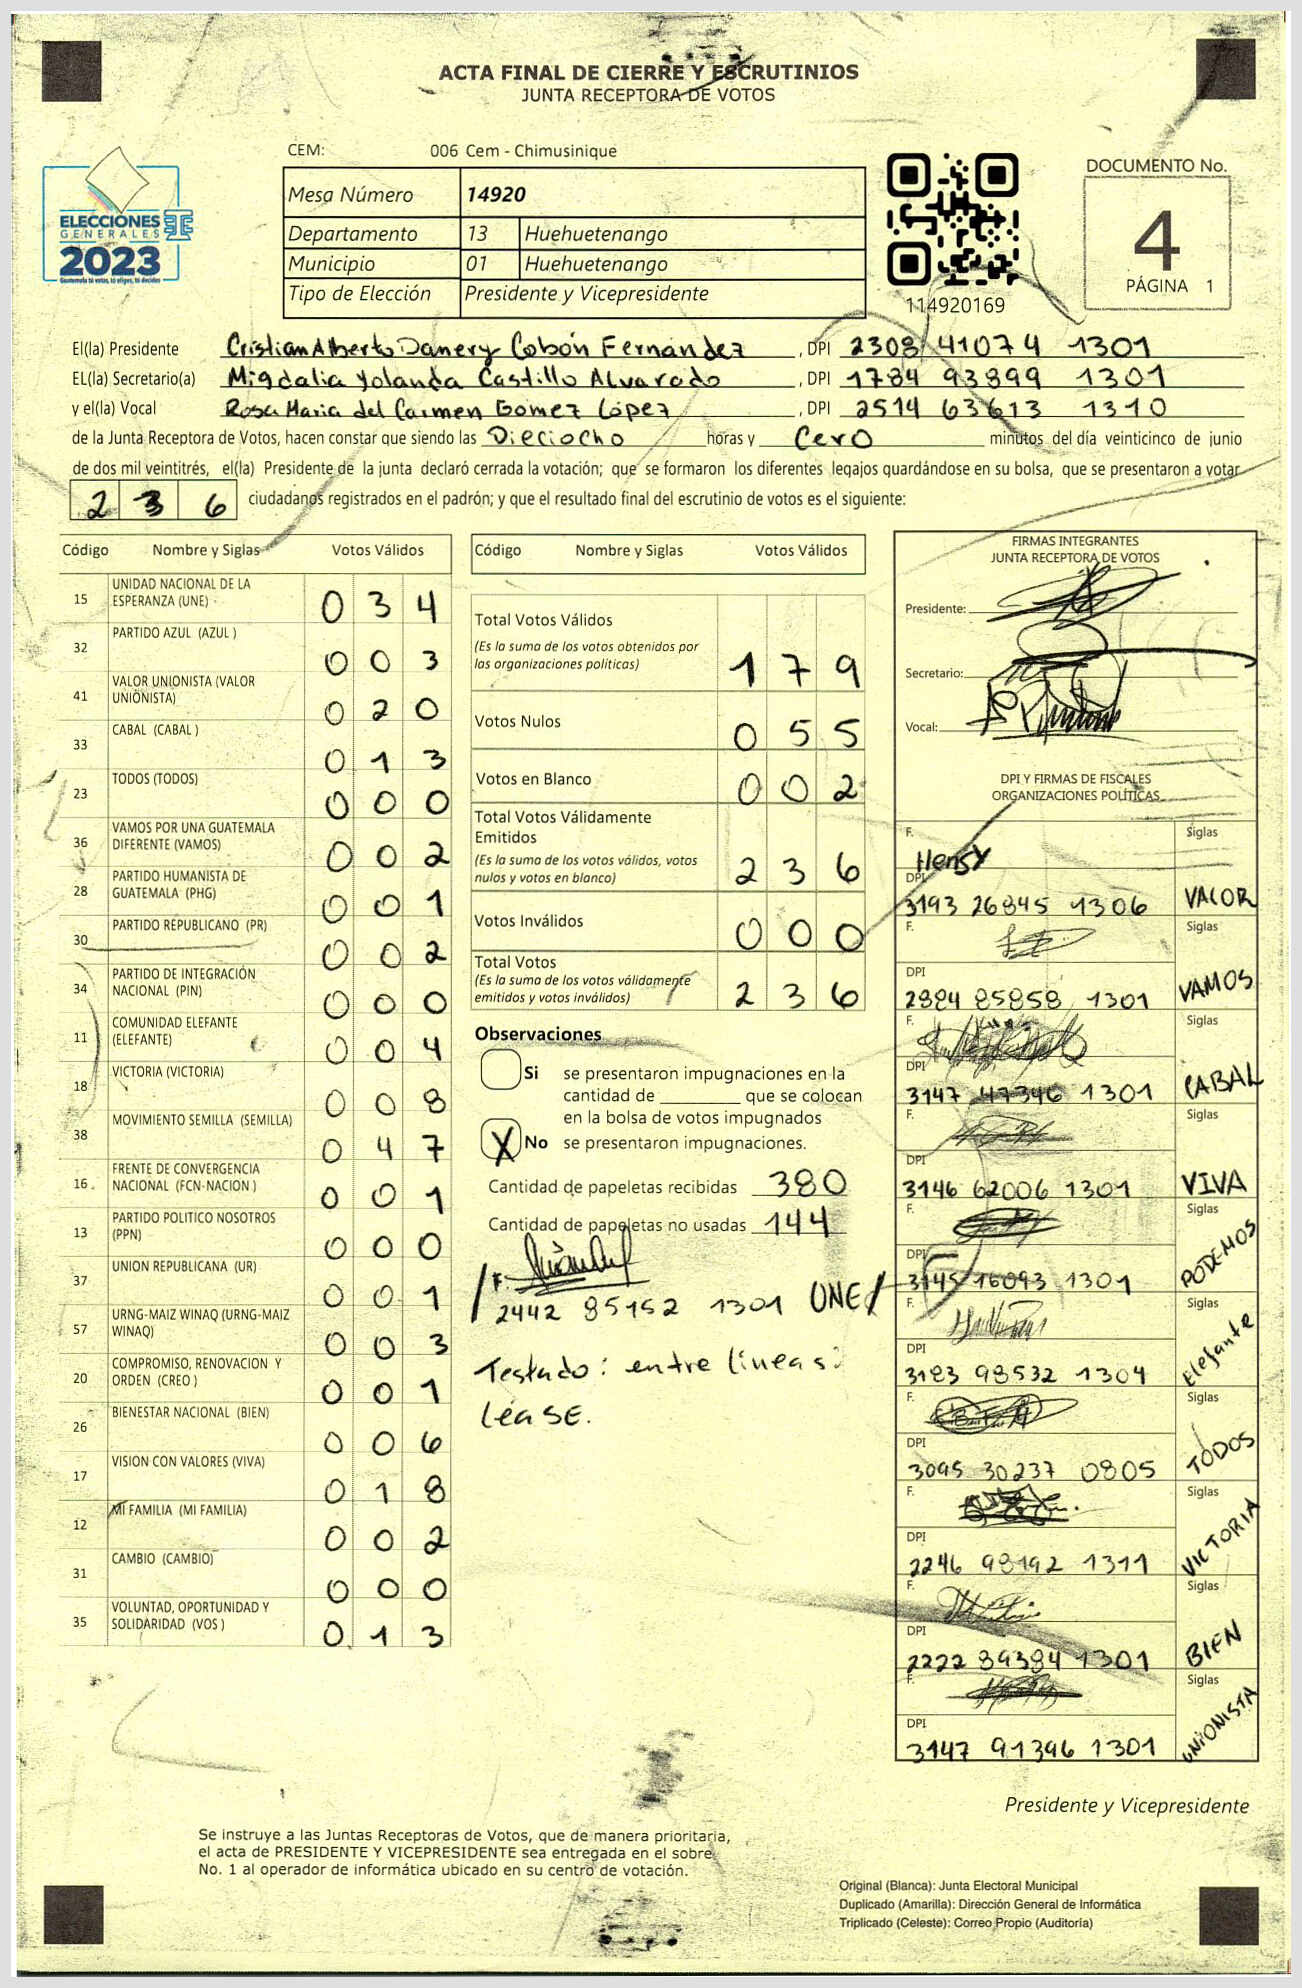 ACTA FINAL DE CIERRE Y ESCRUTINIOS
JUNTA RECEPTORA DE VOTOS
CEM: 006 Cem - Chimusinique
ELECCIONES
GENERALES
2023
Guatemala tú votas, tú eliges, tú decides
Mesa Número 14920
Departamento 13 Huehuetenango
Municipio 01 Huehuetenango
Tipo de Elección Presidente y Vicepresidente
114920169
DOCUMENTO No.
4
PÁGINA 1
El(la) Presidente Cristian Alberto Danery Cobón Fernández, DPI 2308 41074 1301
EL(la) Secretario(a) Migdalia Yolanda Castillo Alvarado, DPI 1784 93899 1301
y el(la) Vocal Rosa Maria del Carmen Gomez López, DPI 2514 63613 1310
de la Junta Receptora de Votos, hacen constar que siendo las Dieciocho horas y Cero minutos del día veinticinco de junio
de dos mil veintitrés, el(la) Presidente de la junta declaró cerrada la votación; que se formaron los diferentes legajos guardándose en su bolsa, que se presentaron a votar
236 ciudadanos registrados en el padrón; y que el resultado final del escrutinio de votos es el siguiente:
Código Nombre y Siglas Votos Válidos
15 UNIDAD NACIONAL DE LA ESPERANZA (UNE) 034
32 PARTIDO AZUL (AZUL ) 003
41 VALOR UNIONISTA (VALOR UNIONISTA) 020
33 CABAL (CABAL ) 013
23 TODOS (TODOS) 000
36 VAMOS POR UNA GUATEMALA DIFERENTE (VAMOS) 002
28 PARTIDO HUMANISTA DE GUATEMALA (PHG) 001
30 PARTIDO REPUBLICANO (PR) 002
34 PARTIDO DE INTEGRACIÓN NACIONAL (PIN) 000
11 COMUNIDAD ELEFANTE (ELEFANTE) 004
18 VICTORIA (VICTORIA) 008
38 MOVIMIENTO SEMILLA (SEMILLA) 047
16 FRENTE DE CONVERGENCIA NACIONAL (FCN-NACION ) 001
13 PARTIDO POLITICO NOSOTROS (PPN) 000
37 UNION REPUBLICANA (UR) 001
57 URNG-MAIZ WINAQ (URNG-MAIZ WINAQ) 003
20 COMPROMISO, RENOVACION Y ORDEN (CREO ) 001
26 BIENESTAR NACIONAL (BIEN) 006
17 VISION CON VALORES (VIVA) 018
12 MI FAMILIA (MI FAMILIA) 002
31 CAMBIO (CAMBIO) 000
35 VOLUNTAD, OPORTUNIDAD Y SOLIDARIDAD (VOS ) 013
Código Nombre y Siglas Votos Válidos
Total Votos Válidos 179
(Es la suma de los votos obtenidos por
las organizaciones políticas)
Votos Nulos 055
Votos en Blanco 002
Total Votos Válidamente
Emitidos 236
(Es la suma de los votos válidos, votos
nulos y votos en blanco)
Votos Inválidos 000
Total Votos 236
(Es la suma de los votos válidamente
emitidos y votos inválidos)
Observaciones
Si se presentaron impugnaciones en la
cantidad de ________ que se colocan
en la bolsa de votos impugnados
X No se presentaron impugnaciones.
Cantidad de papeletas recibidas 380
Cantidad de papeletas no usadas 144
F.
2442 85152 1301 UNE
Testado: entre líneas:
Léase.
FIRMAS INTEGRANTES
JUNTA RECEPTORA DE VOTOS
Presidente:
Secretario:
Vocal:
DPI Y FIRMAS DE FISCALES
ORGANIZACIONES POLÍTICAS
F. Hensy Siglas
DPI
3193 26845 1306 VALOR
F. Siglas
DPI
2884 85858 1301 VAMOS
F. Siglas
DPI
3147 47346 1301 CABAL
F. Siglas
DPI
3146 62006 1301 VIVA
F. Siglas
DPI
3145 16093 1301 PODEMOS
F. Siglas
DPI
3183 98532 1304 Elefante
F. Siglas
DPI
3095 30237 0805 TODOS
F. Siglas
DPI
2246 98192 1311 VICTORIA
F. Siglas
DPI
2222 89384 1301 BIEN
F. Siglas
DPI
3147 91396 1301 UNIONISTA
Presidente y Vicepresidente
Se instruye a las Juntas Receptoras de Votos, que de manera prioritaria,
el acta de PRESIDENTE Y VICEPRESIDENTE sea entregada en el sobre
No. 1 al operador de informática ubicado en su centro de votación.
Original (Blanca): Junta Electoral Municipal
Duplicado (Amarilla): Dirección General de Informática
Triplicado (Celeste): Correo Propio (Auditoría)